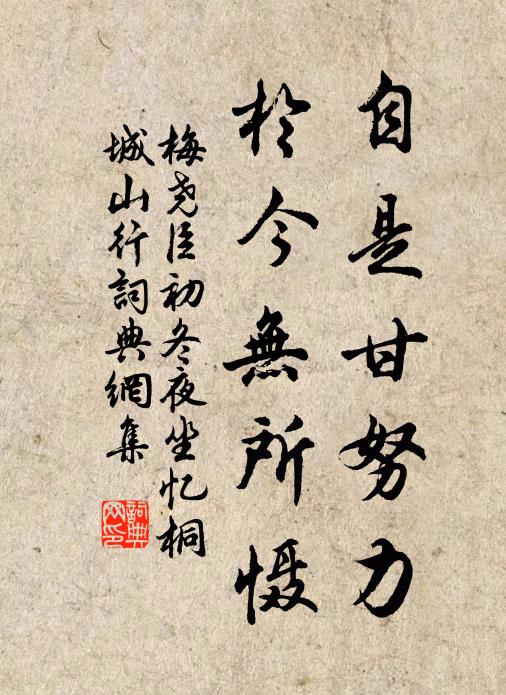 自是甘努力
於今無所慑
梅尧臣初冬夜坐忆桐
城山行詞典網集
詞典网印